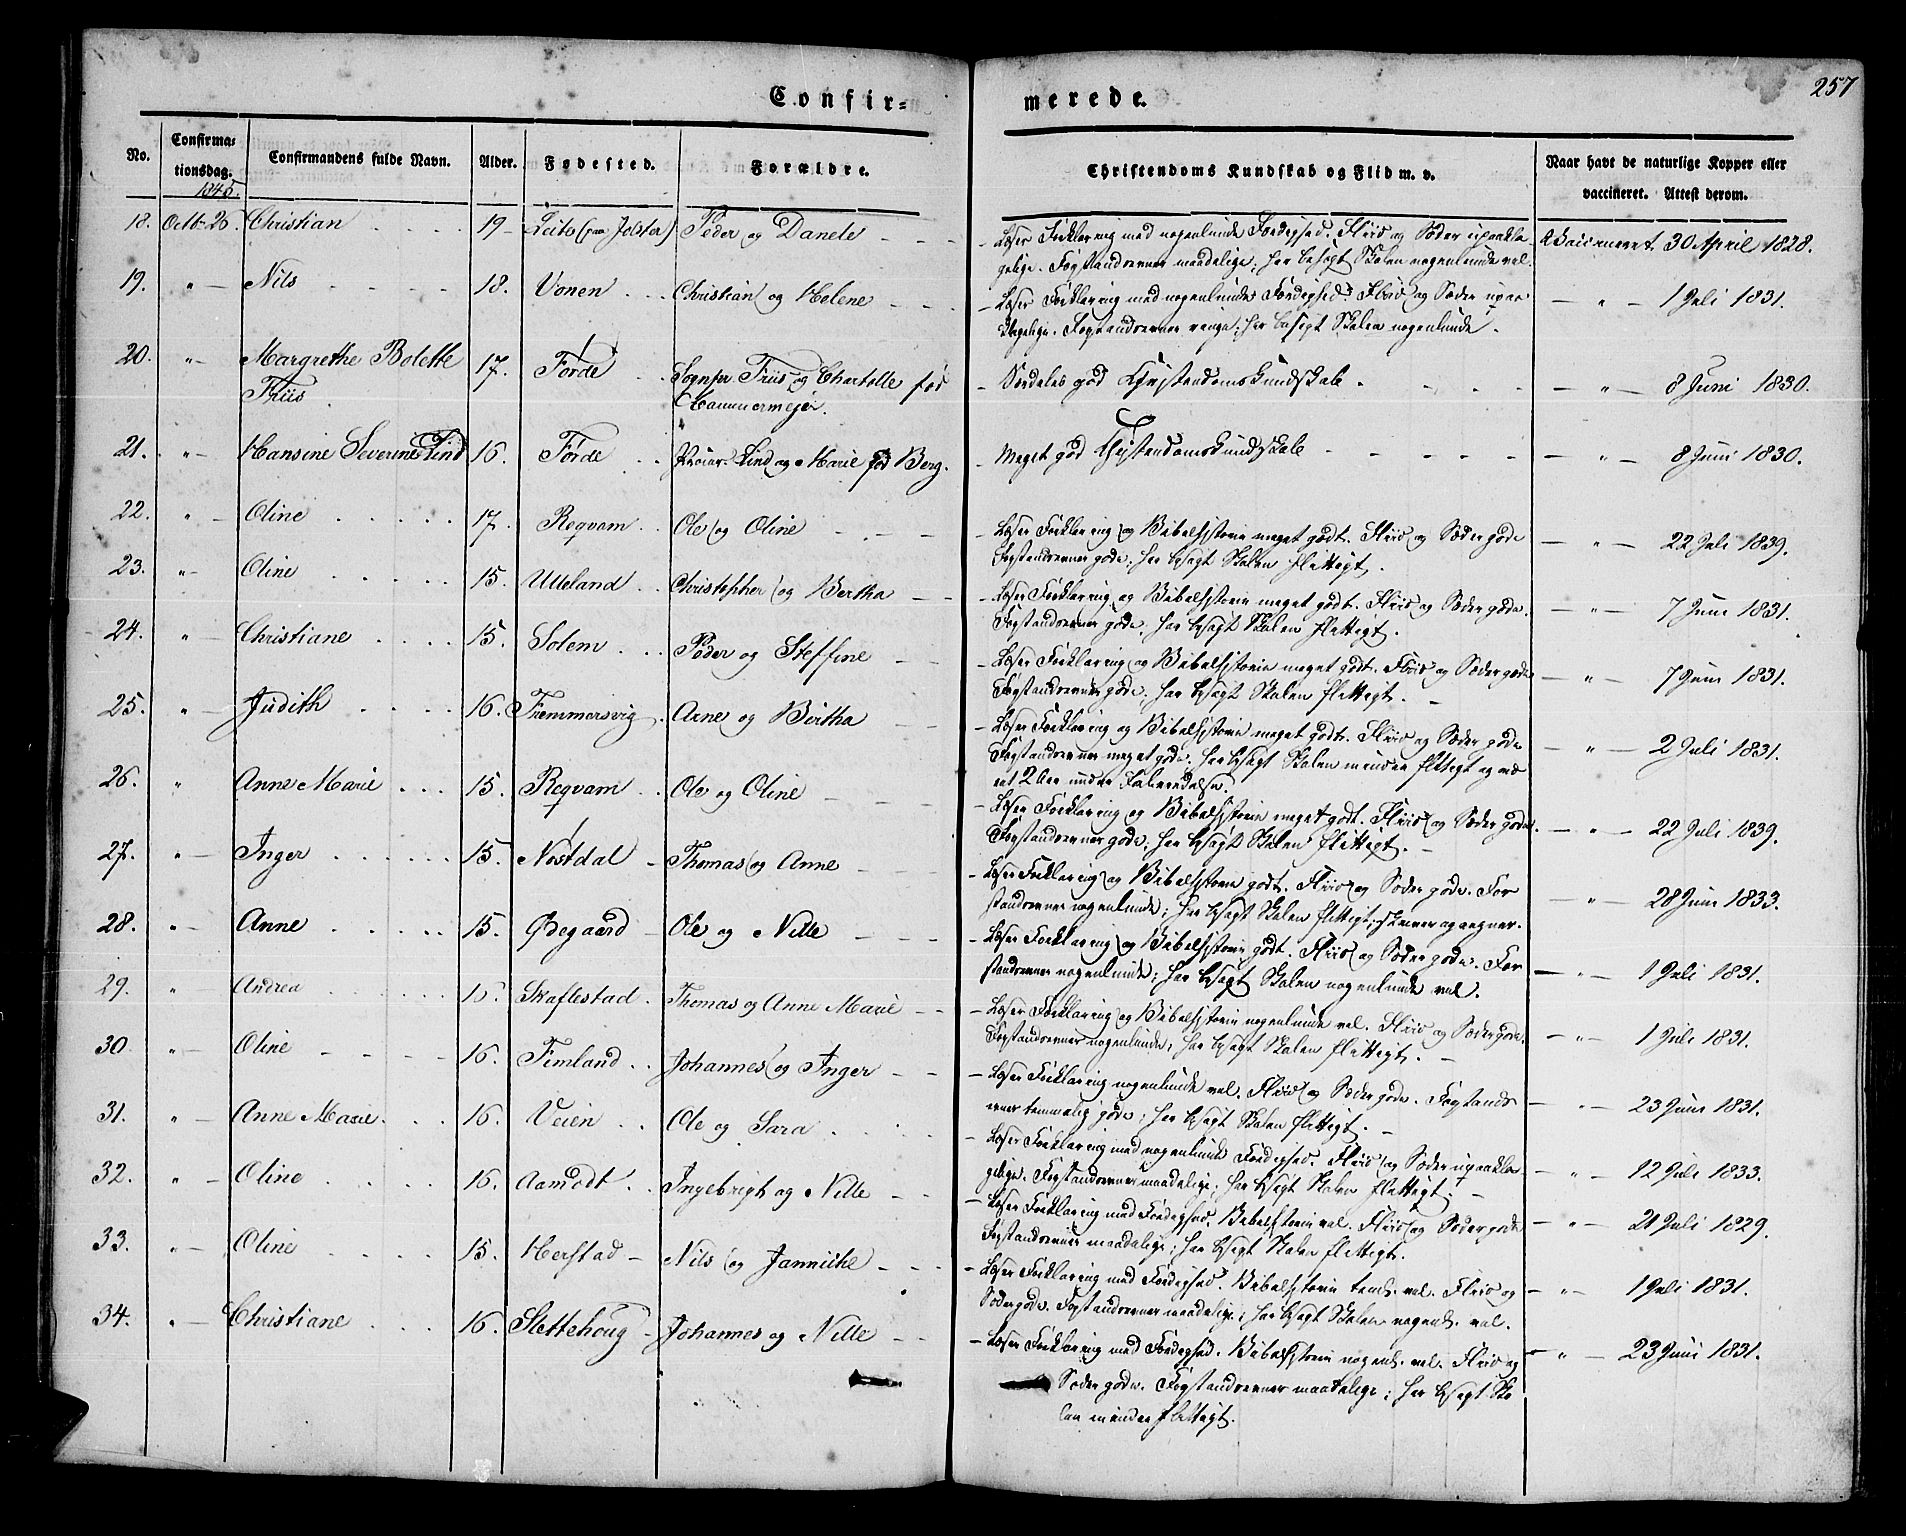 257
Confir-
merede.
No.
Confirma-
tionsdag.
1845.
Confirmandens fulde Navn.
Alder.
Fødested.
Forældre.
Christendoms Kundskab og Flid m. v.
Naar havt de naturlige Kopper eller
vaccineret. Attest derom.
18. Octb. 26. Christian 19 (paa Jolster) Peder og Danele
Læser Forklaring med nogenlunde Færdighed. Fliid og Sæder upaakla-
gelige. Forstandsevner maadelige; har besøgt Skolen nogenlunde vel.
Vaccineret 30 April 1828.
19. " Nils 18. Vonen Christian og Helene
Læser Forklaring med nogenlunde Færdighed. Fliid og Sæder upaa-
klagelige. Forstandsevner ringe; har besøgt Skolen nogenlunde.
" 1 Juli 1831.
20. " Margrethe Bolette 17. Førde Sognpr. Friis og Chartolle fød
Friis Hammermejer.
Særdeles god Christendomskundskab.
" 8 Juni 1830.
21. " Hansine Severine Lind 16. Førde Lind og Marie fød Berg.
Meget god Christendomskundskab
" 8 Juni 1830.
22. " Oline 17. Reqvam Ole og Oline
Læser Forklaring og Bibelhistorie meget godt. Fliid og Sæder gode
Forstandsevner gode; har besøgt Skolen flittigt.
" 22 Juli 1839.
23. " Oline 15. Ulleland Christopher og Bertha
Læser Forklaring og Bibelhistorie meget godt. Fliid og Sæder gode.
Forstandsevner gode, har besøgt Skolen flittigt.
" 7 Juni 1831.
24. " Christiane 15. Solem Peder og Steffine
Læser Forklaring og Bibelhistorie meget godt. Fliid og Sæder gode
Forstandsevner gode; har besøgt Skolen flittigt.
" 7 Juni 1831.
25. " Judith 16. Fremmersvig Arne og Birtha
Læser Forklaring og Bibelhistorie meget godt. Fliid og Sæder gode
Forstandsevner meget gode; har besøgt Skolen mindre flittigt og væ-
ret 2 under Forberedelse.
" 2 Juli 1831.
26. " Anne Marie 15. Reqvam Ole og Oline
Læser Forklaring og Bibelhistorie meget godt. Fliid og Sæder gode.
Forstandsevner gode; har besøgt Skolen flittigt.
" 22 Juli 1839.
27. " Inger 15. Nøstdal Thomas og Anne
Læser Forklaring og Bibelhistorie godt. Fliid og Sæder gode. For-
standsevner nogenlunde; har besøgt Skolen flittigt; skriver og regner.
" 28 Juni 1833.
28. " Anne 15. Øvegaard Ole og Nille
Læser Forklaring og Bibelhistorie godt. Fliid og Sæder gode. For-
standsevner nogenlunde; har besøgt Skolen nogenlunde vel.
" 1 Juli 1831.
29. " Andrea 15. Skaflestad Thomas og Anne Marie
Læser Forklaring og Bibelhistorie nogenlunde vel. Fliid og Sæder gode.
Forstandsevner nogenlunde; har besøgt Skolen flittigt.
" 1 Juli 1831.
30 " Oline 16. Fimland Johannes og Inger
Læser Forklaring nogenlunde vel. Fliid og Sæder gode. Forstands-
evner temmelig gode; har besøgt Skolen flittigt.
" 23 Juni 1831.
31. " Anne Marie 16. Veien Ole og Sara
Læser Forklaring med nogenlunde Færdighed. Fliid og Sæder upaakla-
gelige. Forstandsevner maadelige; har besøgt Skolen flittigt.
" 12 Juli 1833.
32. " Oline 16. Aamodt Ingebrigh og Nille
Læser Forklaring med Færdighed. Bibelhistorie vel. Fliid og Sæder gode
Forstandsevner maadelige; har besøgt Skolen flittigt.
" 21 Juli 1829.
33. " Oline 15. Herstad Nils og Jannicke
Læser Forklaring med Færdighed. Bibelhistorie vel. Fliid og
Sæder gode. Forstandsevner maadelige; har besøgt Skolen nogenl. vel.
" 1 Juli 1831.
34. " Christiane 16. Slettehoug Johannes og Nille
Læser Forklaring med Færdighed. Bibelhistorie nogenl. vel. Fliid og
Sæder gode. Forstandsevner maadelige; har besøgt Sko-
len mindre flittigt.
" 23 Juni 1831.